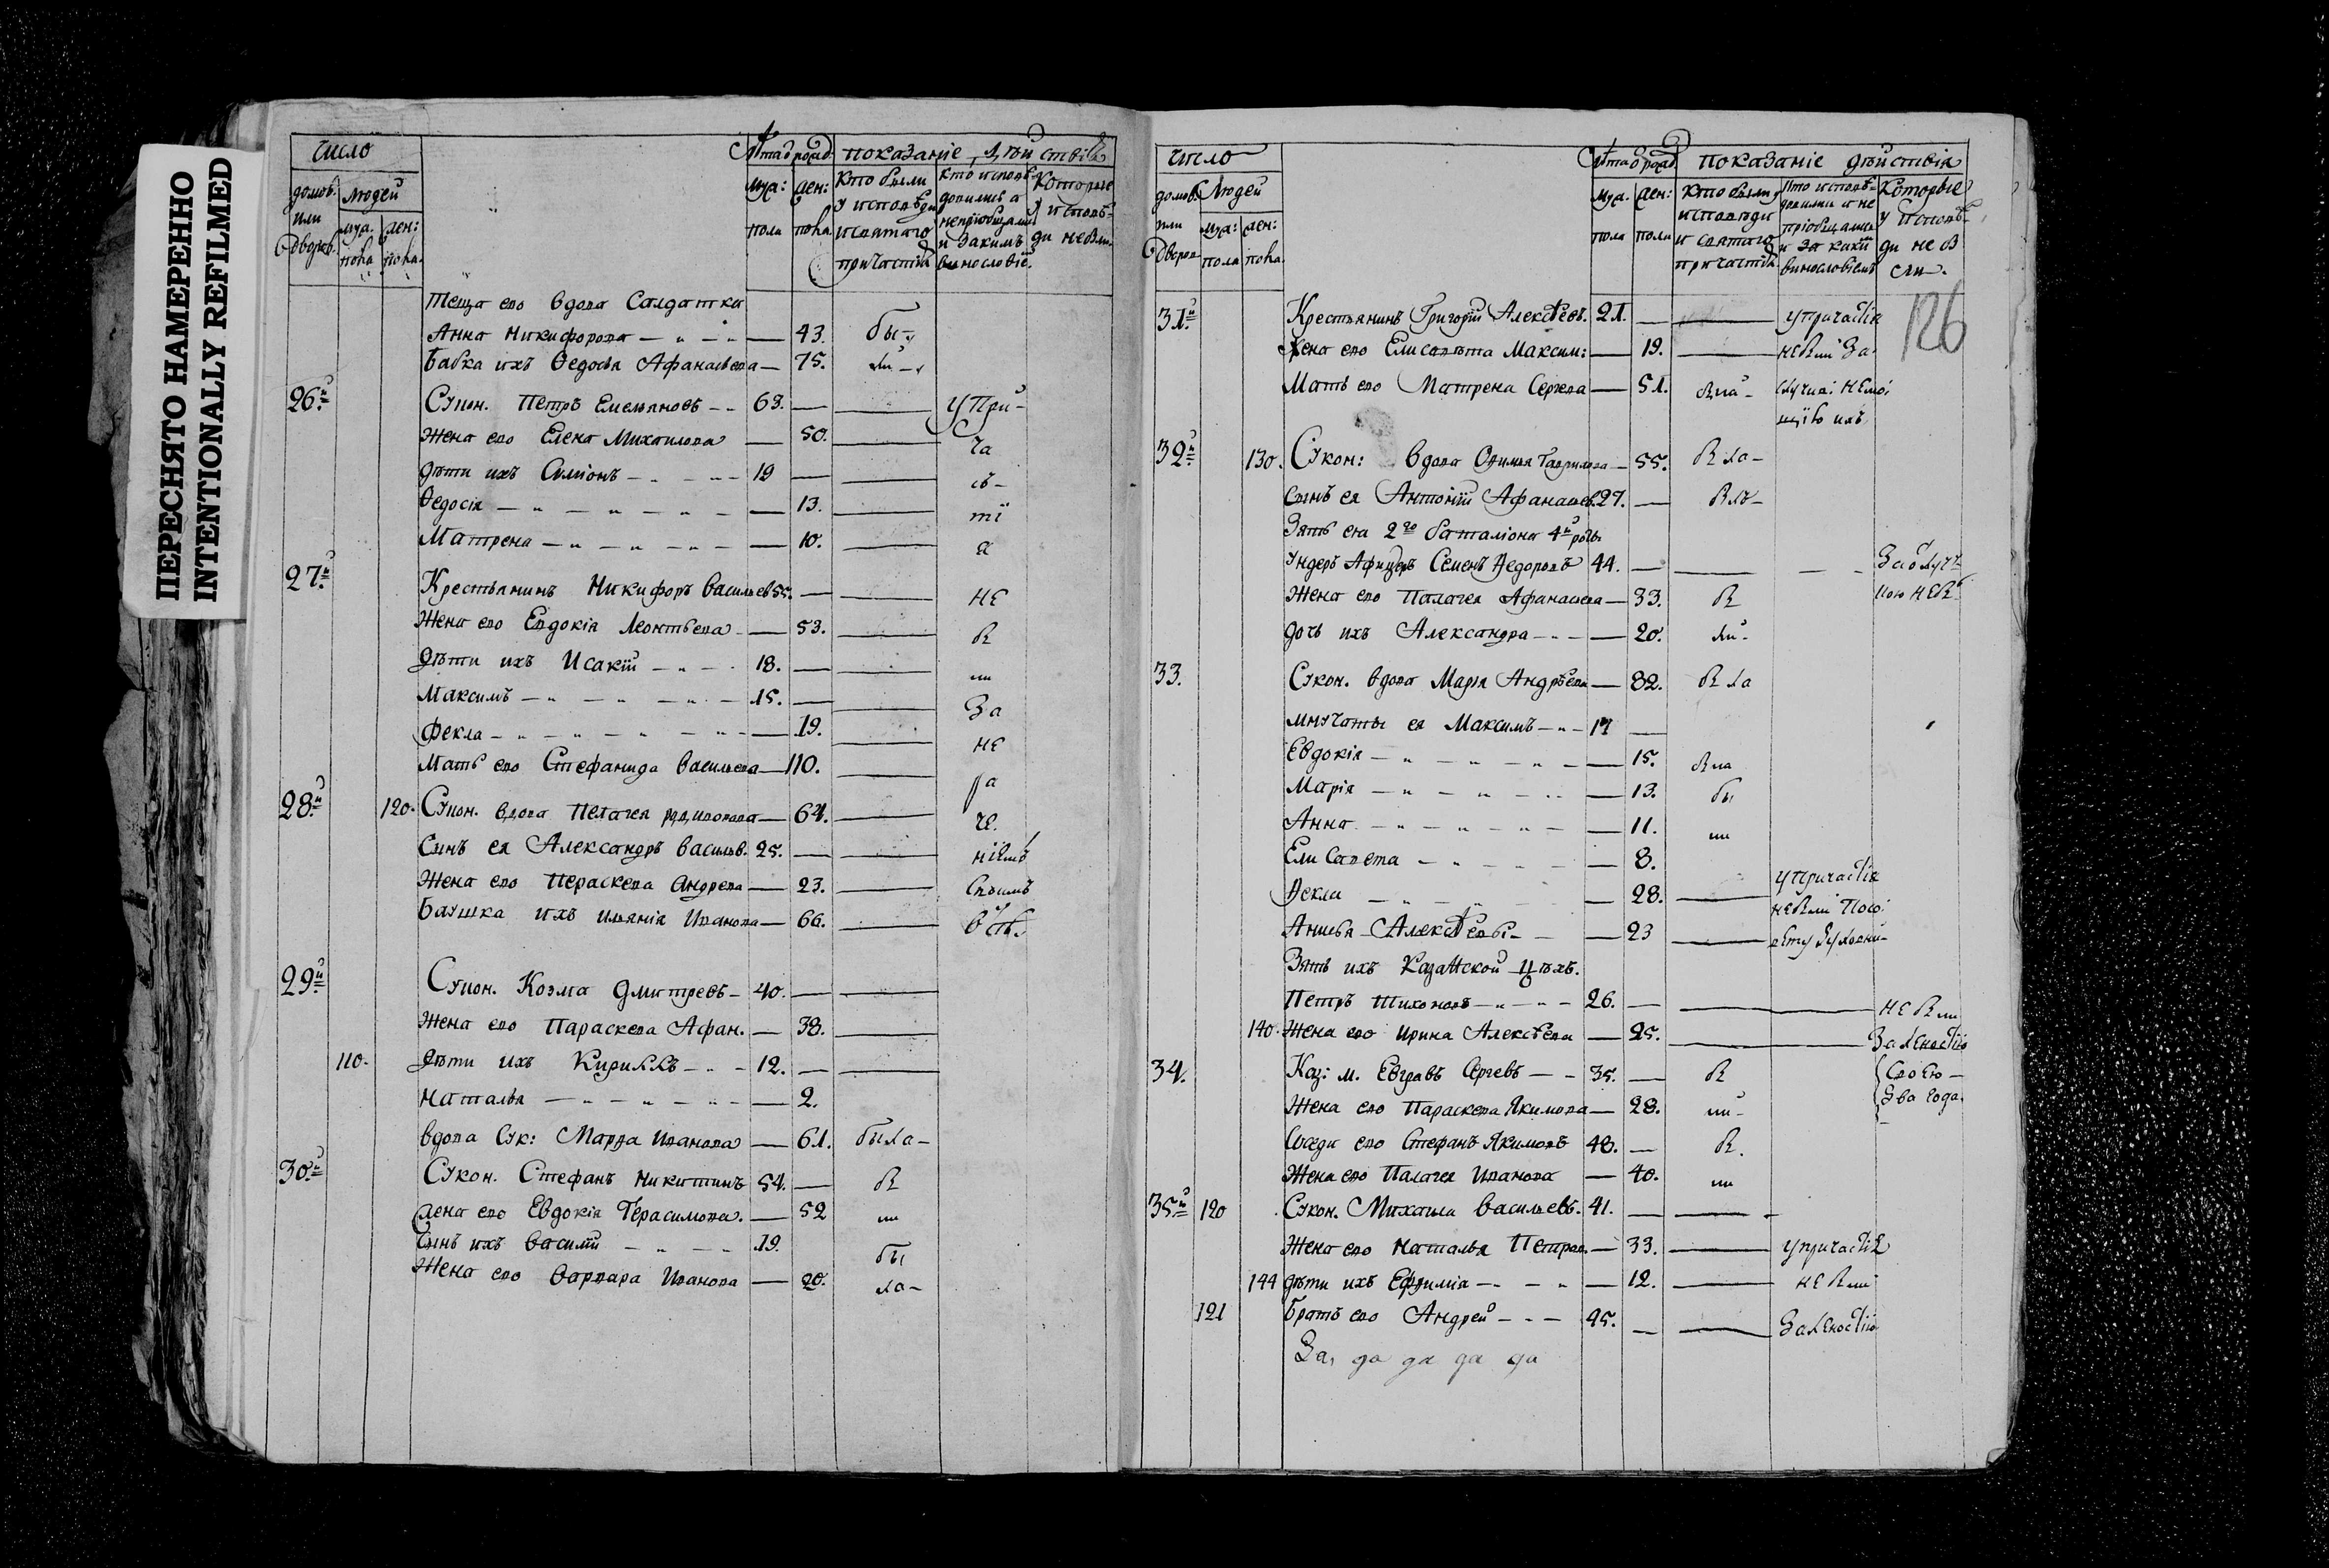 ПЕРЕСНЯТО НАМЕРЕННО
INTENTIONALLY REFILMED
число
Лѣта ѿ рожд.
показанiе дѣйствiя
домов. или дворов.
людей
муж. пола
жен: пола
муж: пола
жен: пола
кто были у исповѣди и святаго причастiя
кто исповѣдались а непрiобщались и закимъ винословiе.
которые у исповѣди небыли.
теща его вдова Салдатка
Анна Никифорова 43. бы-
Бабка ихъ Ѳедосья Афанасьева 75. ли
26й Сукон. Петръ Емельяновъ 63. у При-
Жена его Елена Михаилова 50. ча
дѣти ихъ Симiонъ 19 ст-
Ѳедосiя 13. тi
Матрена 10. я
27й Крестьянинъ Никифоръ Васильев 55. не
Жена его Евдокiя Леонтьева 53. в
дѣти ихъ Исакiй 18. ли
Максимъ 15. За
Фекла 19. не
Мать его Стефанида Васильева 110. ра
28й 120. Сукон. вдова Пелагея 64. че.
Сынъ ея Александръ Васильв. 25. нiемъ
Жена его Параскева Андрева 23. Своимъ
Баушка ихъ Иванова 66.
29й Сукон. Козма Дмитревъ 40.
Жена его Параскева Афан. 38.
110. дѣти ихъ Кириллъ 12.
Наталья 2.
вдова Сук: Марѳа Иванова 61. была
30й Сукон. Стефанъ Никитинъ 54. в
жена его Евдокiя Герасимова. 52 ли
Сынъ ихъ Василiй 19. бы
Жена его Варвара Иванова 20. ла-
число
Лѣта ѿ рожд.
показанiе дѣйствiя
домов. или дворов
людей
муж: пола
жен: пола
муж. пола
жен: пола
кто были у исповѣди и святаго причастiя
кто исповѣдались и не прiобщались и за каким винословiемъ
которые у исповѣди не были.
126
31й Крестьянинъ Григорiй Алексѣевъ. 21. у причастiя
Жена его Елисавета Максим: 19. небыли За
Мать его Матрена Сергева 51. была случив: немо:
щiю ихъ
32й 130. Сукон: вдова Гаврилова 55. была
Сынъ ея Антонiй Афанасьев. 27. былъ
Зять ея 2го баталiона 4й роты
Ундеръ Афицеръ Семенъ Ѳедоровъ 44. За отлуч
кою небы
Жена его Палагея Афанасьева 33. бы
дочь ихъ Александра 20. ли
33. Сукон. вдова Марiя Андрѣева 82. была
внучаты ея Максимъ 17
Евдокiя 15. была
Марiя 13. бы
Анна 11. ли
Елисавета 8.
Ѳекла 28. у причастiя
небыли По со:
Анисья Алексѣевы 23 вѣту духовни
Зять ихъ Казанской
Петръ Тихоновъ 26. не были
140. Жена его Ирина Алексѣева 25. За леностiю
34. Каз: м. Евграфъ Сергевъ 35. бы Своею
Жена его Параскева Якимова 28. ли два года
Соседи его Стефанъ Якимовъ 48. бы
Жена его Палагея Иванова 40. ли
35й 120 Сукон. Михаила Васильевъ. 41.
Жена его Наталья Петров. 33. у причастiя
144 дѣти ихъ Евфимiя 12. не были
121 Братъ его Андрей 25. За леностiю
За, да да да да